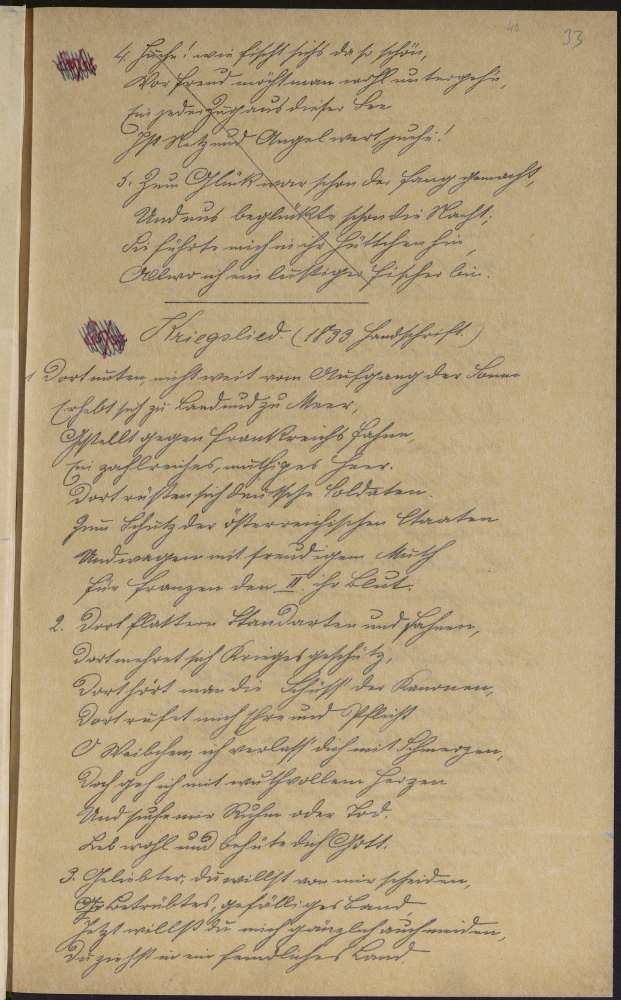 40
33
4. Juche! wie fischt sichs da so schön,
Vor Freud möcht man wohl untergehn,
Ein jeder Zug aus dieser See
Ist Netz und Angel wert, juche!
5. Zum Glück war schon der Fang gemacht,
Und uns beglückte schon die Nacht;
Sie führte mich in ihr Hüttchen hin,
Allwo ich ein lustiger Fischer bin.
Kriegslied. (1833 Handschrift.)
1 Dort unten, nicht weit vom Aufgang der Sonne
Erhebt sich zu Land und zu Meer,
Gestellt gegen Frankreichs Fahne,
Ein zahlreiches, muthiges Heer.
Dort rüsten sich deutsche Soldaten.
Zum Schutz der österreichischen Staaten
Und wagen mit freudigem Muth
Für Franzen den II. ihr Blut.
2. Dort flattern Standarten und Fahnen,
Dort mehret sich Kriegesgeschütz,
Dort hört man die Schüss' der Kanonen,
Dort rufet mich Ehre und Pflicht
O Weibchen, ich verlass' dich mit Schmerzen,
Doch geh ich mit muthvollem Herzen
Und suche mir Ruhm oder Tod.
Leb wohl und behüte dich Gott.
3. Geliebter, du willst von mir scheiden,
Betrübtes, gefälliges Band,
Jetzt willst du mich gänzlich auch meiden,
Du ziehst in ein feindliches Land.